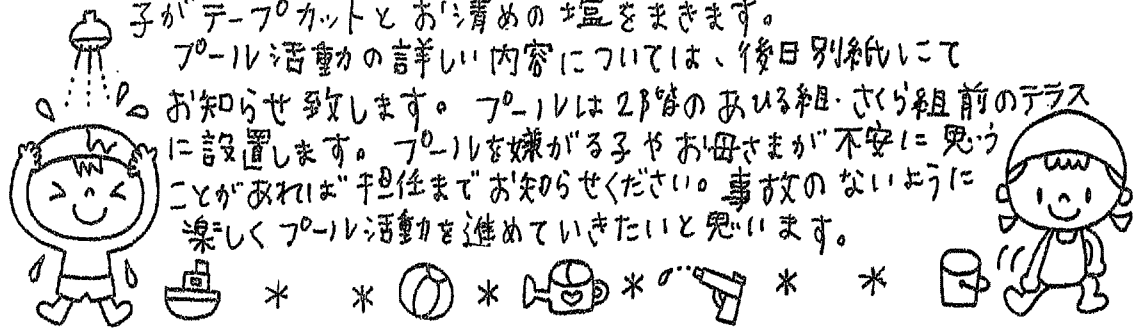 子がテープカットとお清めの塩をまきます。
プール活動の詳しい内容については、後日別紙にて
お知らせ致します。プールは2階のあひる組・さくら組前のテラス
に設置します。プールを嫌がる子やお母さまが不安に思う
ことがあれば担任までお知らせください。事故のないように
楽しくプール活動を進めていきたいと思います。